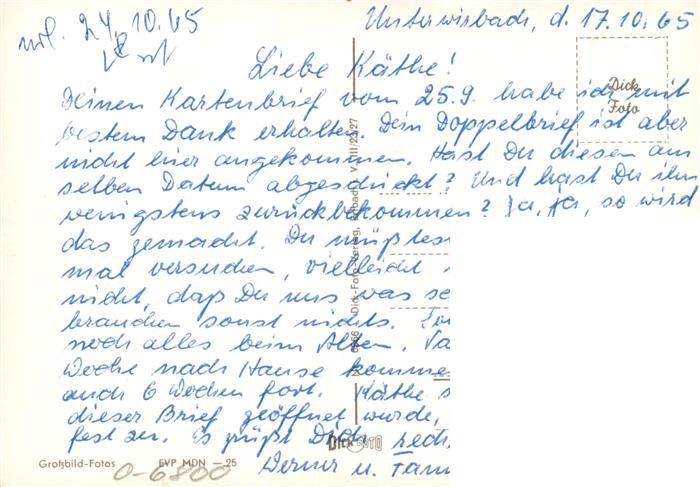 24. 10. 65
Unterwirbach, d. 17. 10. 65
Liebe Käthe!
Deinen Kartenbrief vom 25.9. habe ich mit
bestem Dank erhalten. Dein Doppelbrief ist aber
nicht hier angekommen. Hast Du diesen am
selben Datum abgeschickt? Und hast Du ihn
wenigstens zurückbekommen? Ja, ja, so wird
das gemacht. Du müßtes
mal versuchen, vielleicht
nicht, daß Du uns was se
brauchen sonst nichts.
noch alles beim Alten.
Woche nach Hause komme
auch 6 Wochen fort. Käthe
dieser Brief geöffnet wurde,
fest zu. Es grüßt Dich rech
Werner u. Fam
Dick
Foto
Dick-Foto-Verlag, V III/23/27
Dick FOTO
Großbild-Fotos EVP MDN — 25
0-6800